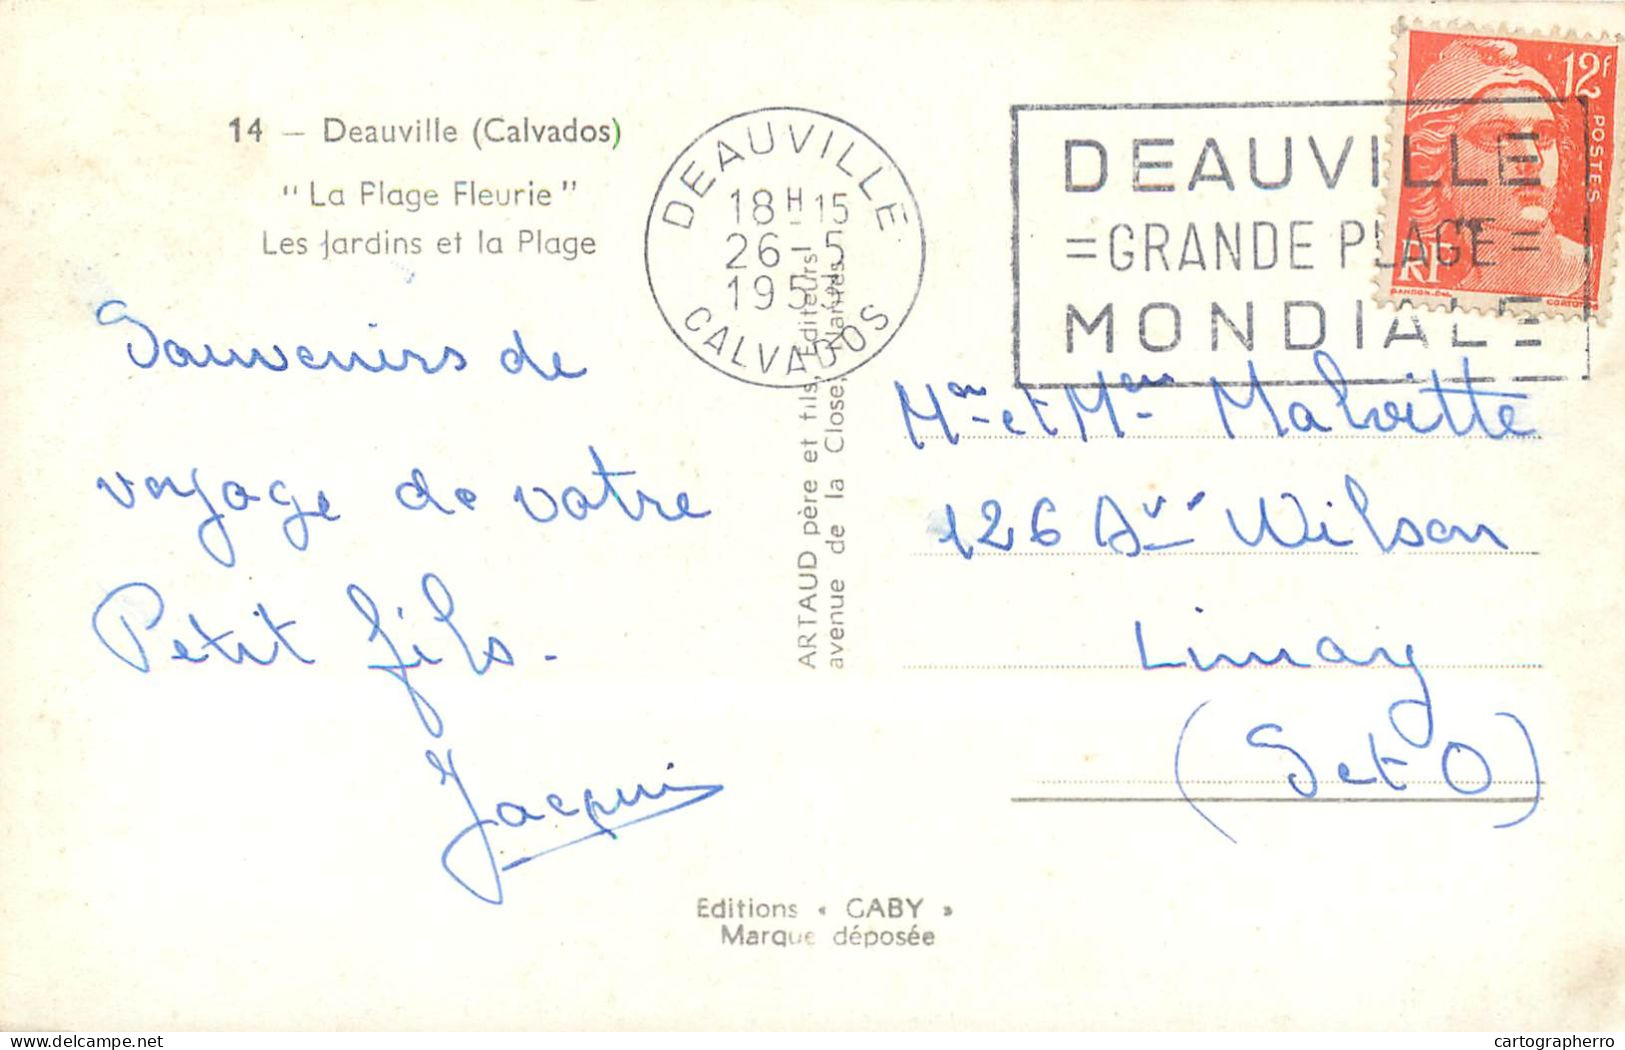 14 — Deauville (Calvados)
"La Plage Fleurie"
Les Jardins et la Plage
Souvenirs de
voyage de votre
Petit fils.
Jacqui
DEAUVILLE
18H15
26-5
195
CALVADOS
ARTAUD père et fils, Editeurs
avenue de la Close, Nantes
DEAUVILLE
=GRANDE PLAGE=
MONDIALE
12f
POSTES
RF
Mr et Mme Malvitte
126 Ave Wilson
Limay
(S et O)
Editions « GABY »
Marque déposée
cartographerro